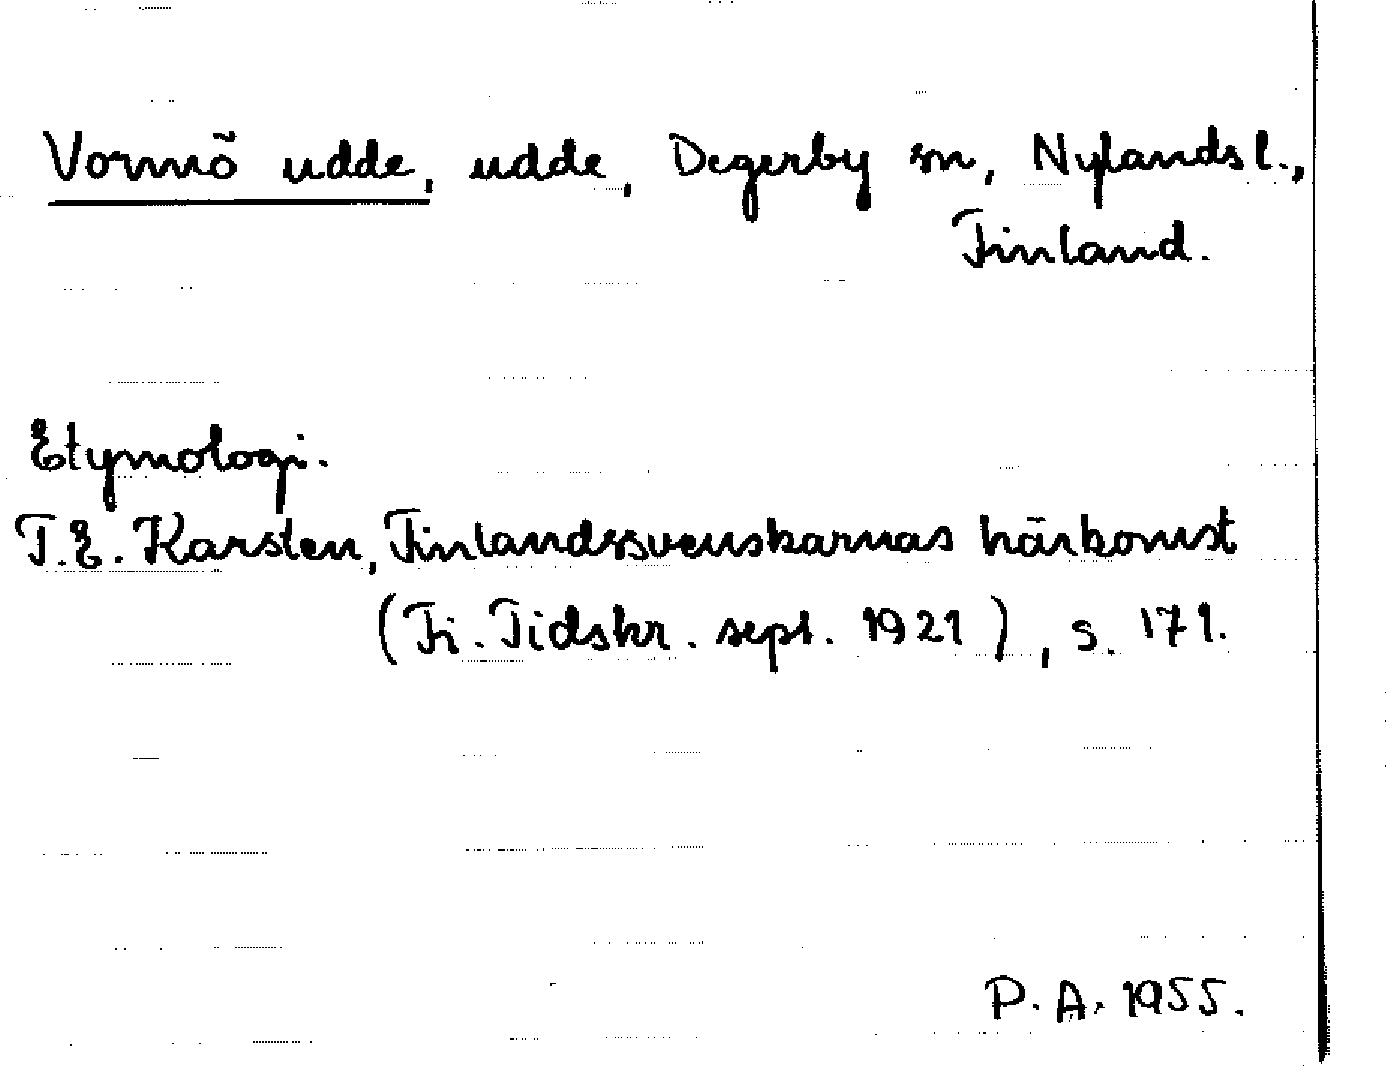 Vormö udde, udde, Degerby sn, Nylands l.,
Finland.
Etymologi.
T.E. Karsten, Finlandssvenskarnas härkomst
(Fi. Tidskr. sept. 1921), s. 171.
P. A. 1955.